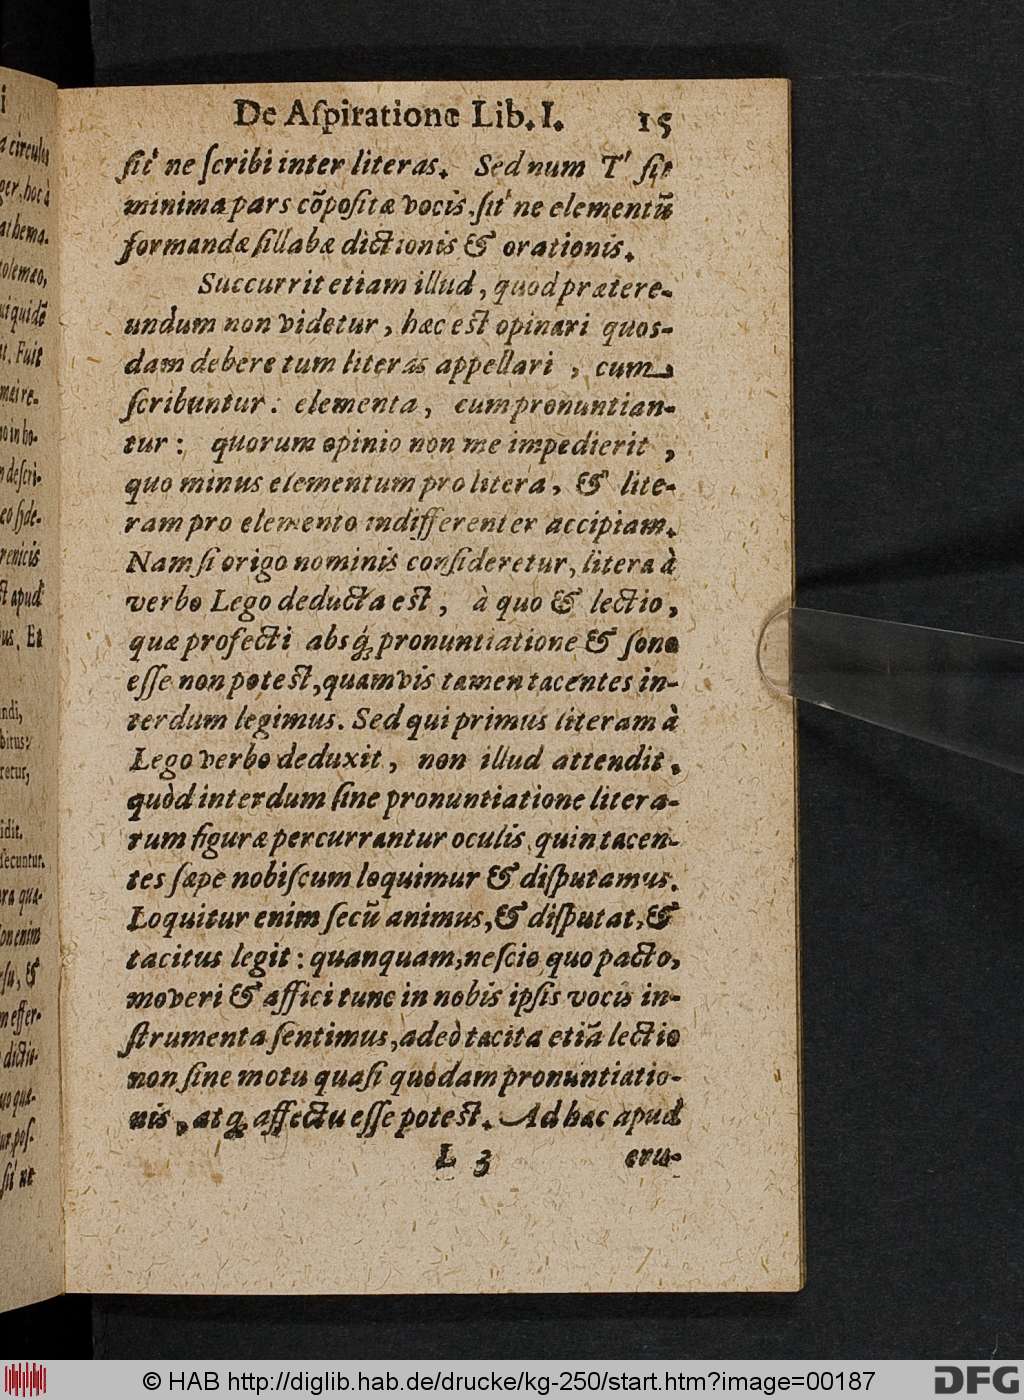 De Aſpiratione Lib. I. 15
ſit' ne ſcribi inter literas. Sed num T' ſit
minima pars cõpoſitæ vocis. ſit' ne elementũ
formandæ ſillabæ dictionis & orationis.
Succurrit etiam illud, quod prætere-
undum non videtur, hæc est opinari quos-
dam debere tum literas appellari, cum
ſcribuntur: elementa, cum pronuntian-
tur: quorum opinio non me impedierit,
quo minus elementum pro litera, & lite-
ram pro elemento indifferenter accipiam.
Nam ſi origo nominis conſideretur, litera à
verbo Lego deducta est, à quo & lectio,
quæ profecti absq́; pronuntiatione & ſono
eſſe non potest, quamvis tamen tacentes in-
terdum legimus. Sed qui primus literam à
Lego verbo deduxit, non illud attendit,
quòd interdum ſine pronuntiatione litera-
rum figuræ percurrantur oculis, quin tacen-
tes ſæpe nobiſcum loquimur & diſputamus.
Loquitur enim ſecũ animus, & diſputat, &
tacitus legit: quanquam, neſcio quo pacto,
moveri & affici tunc in nobis ipſis vocis in-
ſtrumenta ſentimus, adeò tacita etiã lectio
non ſine motu quaſi quodam pronuntiatio-
nis, atq; affectu eſſe potest. Ad hæc apud
L 3 eru-
a circulos
ger, hoc à
athema-
tolemæo,
ui quidẽ
it. Fuit
mai re-
no in ho-
n deſcri-
eo ſyde-
renicis
st apud
us. Et
ndi,
bitus:
retur,
idit.
ſecuntur.
ora qua-
on enim
rſu, &
m effer-
dictio-
uo que-
ur, poſ-
ſit' ne
© HAB http://diglib.hab.de/drucke/kg-250/start.htm?image=00187
DFG